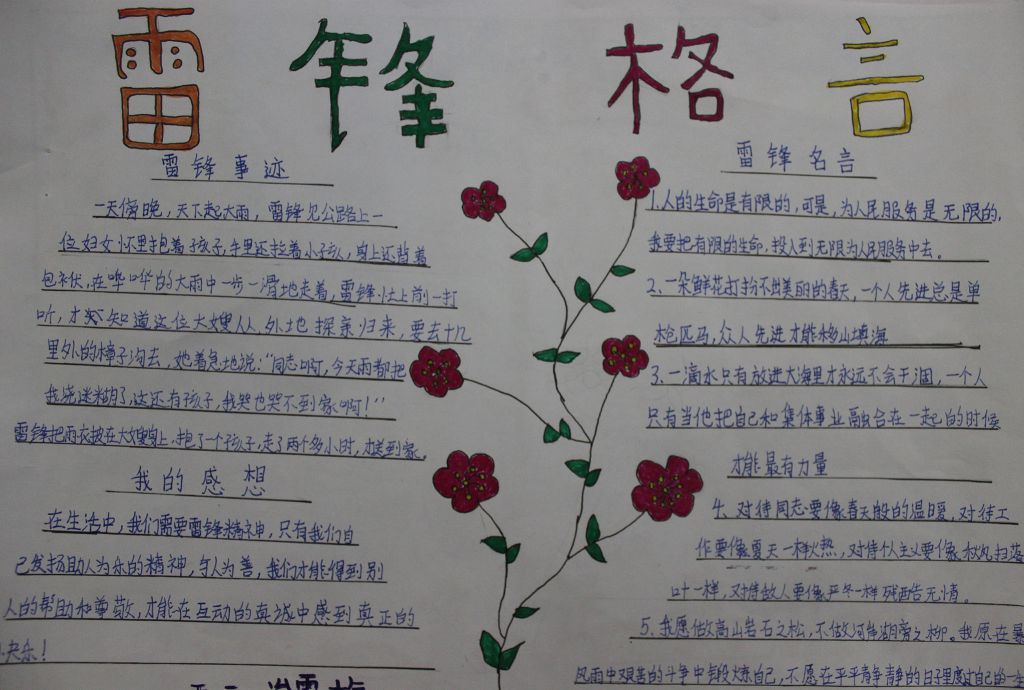 雷锋格言
雷锋事迹
一天傍晚，天下起大雨，雷锋见公路上一
位妇女怀里抱着孩子，手里还拉着小孩，身上还背着
包袱，在哗哗的大雨中一步一滑地走着，雷锋忙上前一打
听，才知道这位大嫂从外地探亲归来，要去十几
里外的樟子沟去，她着急地说：“同志啊，今天雨都把
我浇迷糊了，这还有孩子，我哭也哭不到家啊！”
雷锋把雨衣披在大嫂身上，抱了一个孩子，走了两个多小时，才送到家。
我的感想
在生活中，我们需要雷锋精神，只有我们自
己发扬助人为乐的精神，与人为善，我们才能得到别
人的帮助和尊敬，才能在互动的真诚中感到真正的
快乐！
雷锋名言
1.人的生命是有限的，可是，为人民服务是无限的，
我要把有限的生命，投入到无限为人民服务中去。
2、一朵鲜花打扮不出美丽的春天，一个人先进总是单
枪匹马，众人先进才能移山填海
3、一滴水只有放进大海里才永远不会干涸，一个人
只有当他把自己和集体事业融合在一起的时候
才能最有力量
4、对待同志要像春天般的温暖，对待工
作要像夏天一样火热，对待个人主义要像秋风扫落
叶一样，对待敌人要像严冬一样残酷无情。
5、我愿做高山岩石之松，不做河岸湖旁之柳。我愿在暴
风雨中艰苦的斗争中锻炼自己，不愿在平平静静的日子里度过自己的一生